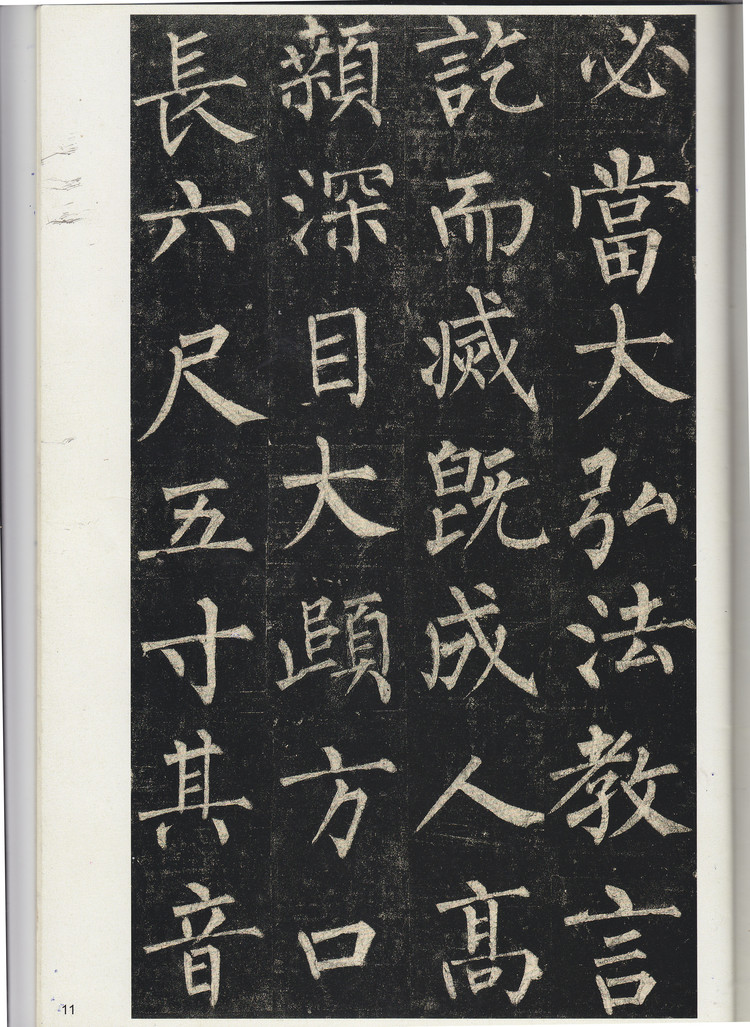 必當大弘法教言
訖而滅既成人高
顙深目大頤方口
長六尺五寸其音
11